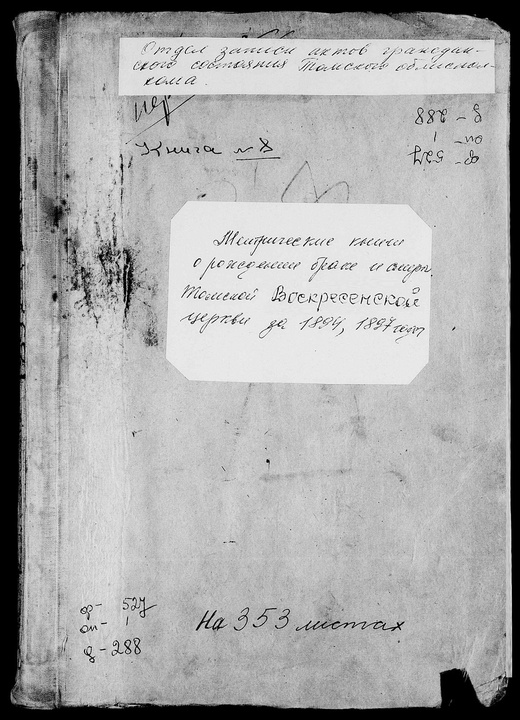 Отдел записи актов граждан-
ского состояния Томского облиспол-
кома.
Книга №8
д - 288
оп - 1
ф - 527
Метрические книги
о рождении браке и смерти
Томской Воскресенской
церкви за 1894, 1897 годы
ф - 527
оп - 1
д - 288
На 353 листах